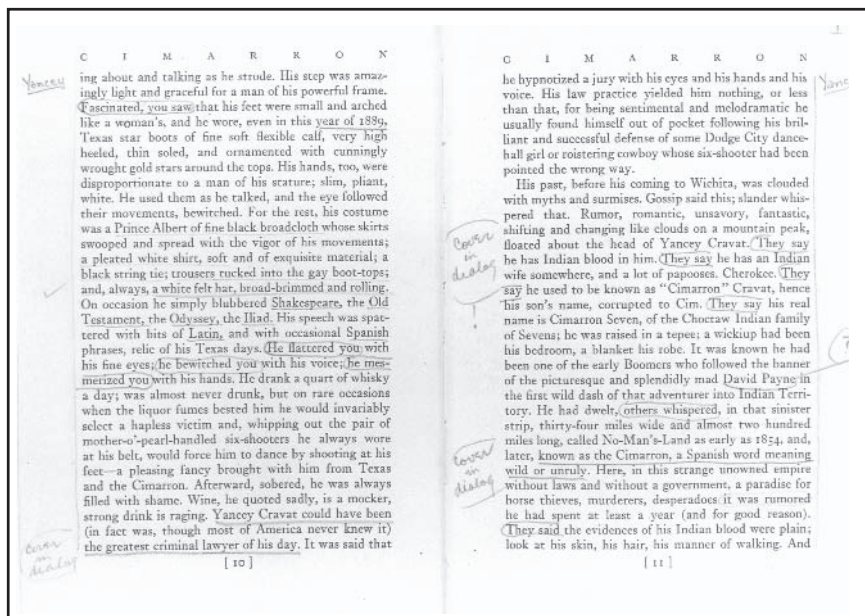 C I M A R R O N
Yancey
ing about and talking as he strode. His step was amaz-
ingly light and graceful for a man of his powerful frame.
Fascinated, you saw that his feet were small and arched
like a woman's, and he wore, even in this year of 1889,
Texas star boots of fine soft flexible calf, very high
heeled, thin soled, and ornamented with cunningly
wrought gold stars around the tops. His hands, too, were
disproportionate to a man of his stature; slim, pliant,
white. He used them as he talked, and the eye followed
their movements, bewitched. For the rest, his costume
was a Prince Albert of fine black broadcloth whose skirts
swooped and spread with the vigor of his movements;
a pleated white shirt, soft and of exquisite material; a
black string tie; trousers tucked into the gay boot-tops;
and, always, a white felt hat, broad-brimmed and rolling.
On occasion he simply blubbered Shakespeare, the Old
Testament, the Odyssey, the Iliad. His speech was spat-
tered with bits of Latin, and with occasional Spanish
phrases, relic of his Texas days. He flattered you with
his fine eyes; he bewitched you with his voice; he mes-
merized you with his hands. He drank a quart of whisky
a day; was almost never drunk, but on rare occasions
when the liquor fumes bested him he would invariably
select a hapless victim and, whipping out the pair of
mother-o'-pearl-handled six-shooters he always wore
at his belt, would force him to dance by shooting at his
feet—a pleasing fancy brought with him from Texas
and the Cimarron. Afterward, sobered, he was always
filled with shame. Wine, he quoted sadly, is a mocker,
strong drink is raging. Yancey Cravat could have been
(in fact was, though most of America never knew it)
the greatest criminal lawyer of his day. It was said that
cover
in
dialog
[ 10 ]
C I M A R R O N
he hypnotized a jury with his eyes and his hands and his
voice. His law practice yielded him nothing, or less
than that, for being sentimental and melodramatic he
usually found himself out of pocket following his bril-
liant and successful defense of some Dodge City dance-
hall girl or roistering cowboy whose six-shooter had been
pointed the wrong way.
His past, before his coming to Wichita, was clouded
with myths and surmises. Gossip said this; slander whis-
pered that. Rumor, romantic, unsavory, fantastic,
shifting and changing like clouds on a mountain peak,
floated about the head of Yancey Cravat. They say
he has Indian blood in him. They say he has an Indian
wife somewhere, and a lot of papooses. Cherokee. They
say he used to be known as "Cimarron" Cravat, hence
his son's name, corrupted to Cim. They say his real
name is Cimarron Seven, of the Choctaw Indian family
of Sevens; he was raised in a tepee; a wickiup had been
his bedroom, a blanket his robe. It was known he had
been one of the early Boomers who followed the banner
of the picturesque and splendidly mad David Payne in
the first wild dash of that adventurer into Indian Terri-
tory. He had dwelt, others whispered, in that sinister
strip, thirty-four miles wide and almost two hundred
miles long, called No-Man's-Land as early as 1854, and,
later, known as the Cimarron, a Spanish word meaning
wild or unruly. Here, in this strange unowned empire
without laws and without a government, a paradise for
horse thieves, murderers, desperadoes it was rumored
he had spent at least a year (and for good reason).
They said the evidences of his Indian blood were plain;
look at his skin, his hair, his manner of walking. And
[ 11 ]
cover
in
dialog
!
cover
in
dialog